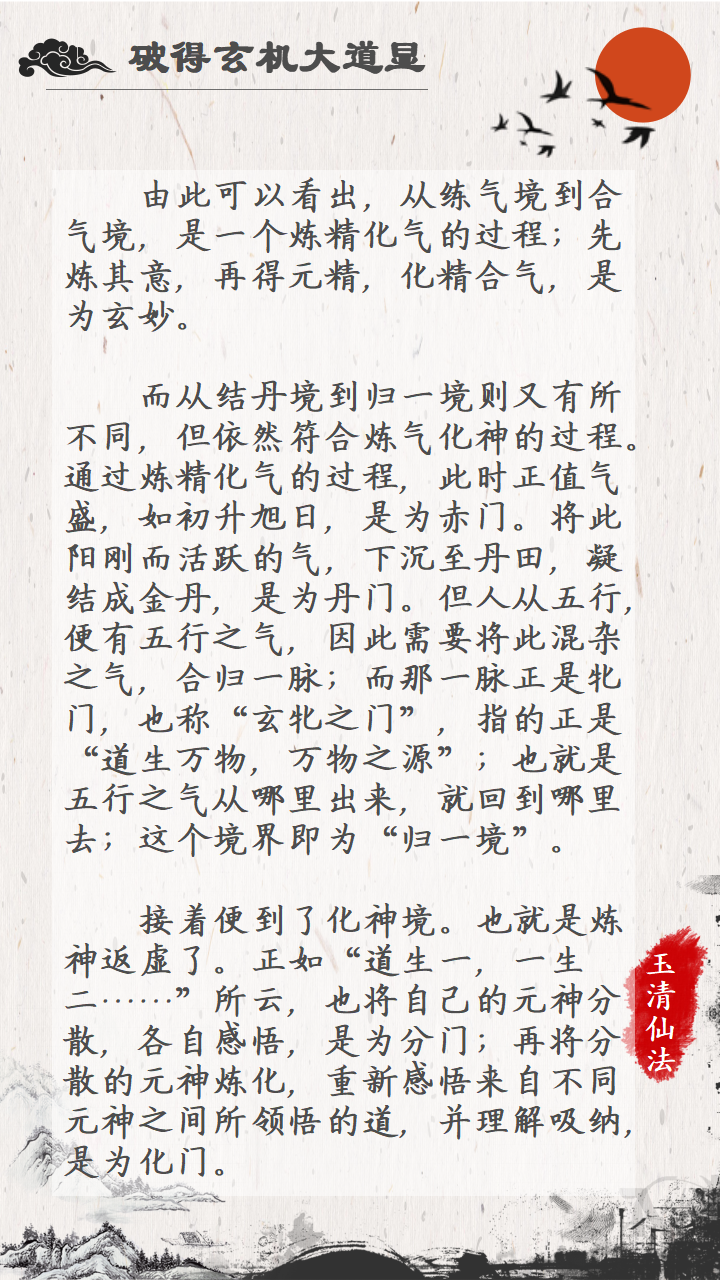 破得玄机大道显
由此可以看出，从练气境到合
气境，是一个炼精化气的过程；先
炼其意，再得元精，化精合气，是
为玄妙。
而从结丹境到归一境则又有所
不同，但依然符合炼气化神的过程。
通过炼精化气的过程，此时正值气
盛，如初升旭日，是为赤门。将此
阳刚而活跃的气，下沉至丹田，凝
结成金丹，是为丹门。但人从五行，
便有五行之气，因此需要将此混杂
之气，合归一脉；而那一脉正是牝
门，也称“玄牝之门”，指的正是
“道生万物，万物之源”；也就是
五行之气从哪里出来，就回到哪里
去；这个境界即为“归一境”。
接着便到了化神境。也就是炼
神返虚了。正如“道生一，一生
二……”所云，也将自己的元神分
散，各自感悟，是为分门；再将分
散的元神炼化，重新感悟来自不同
元神之间所领悟的道，并理解吸纳，
是为化门。
玉清仙法